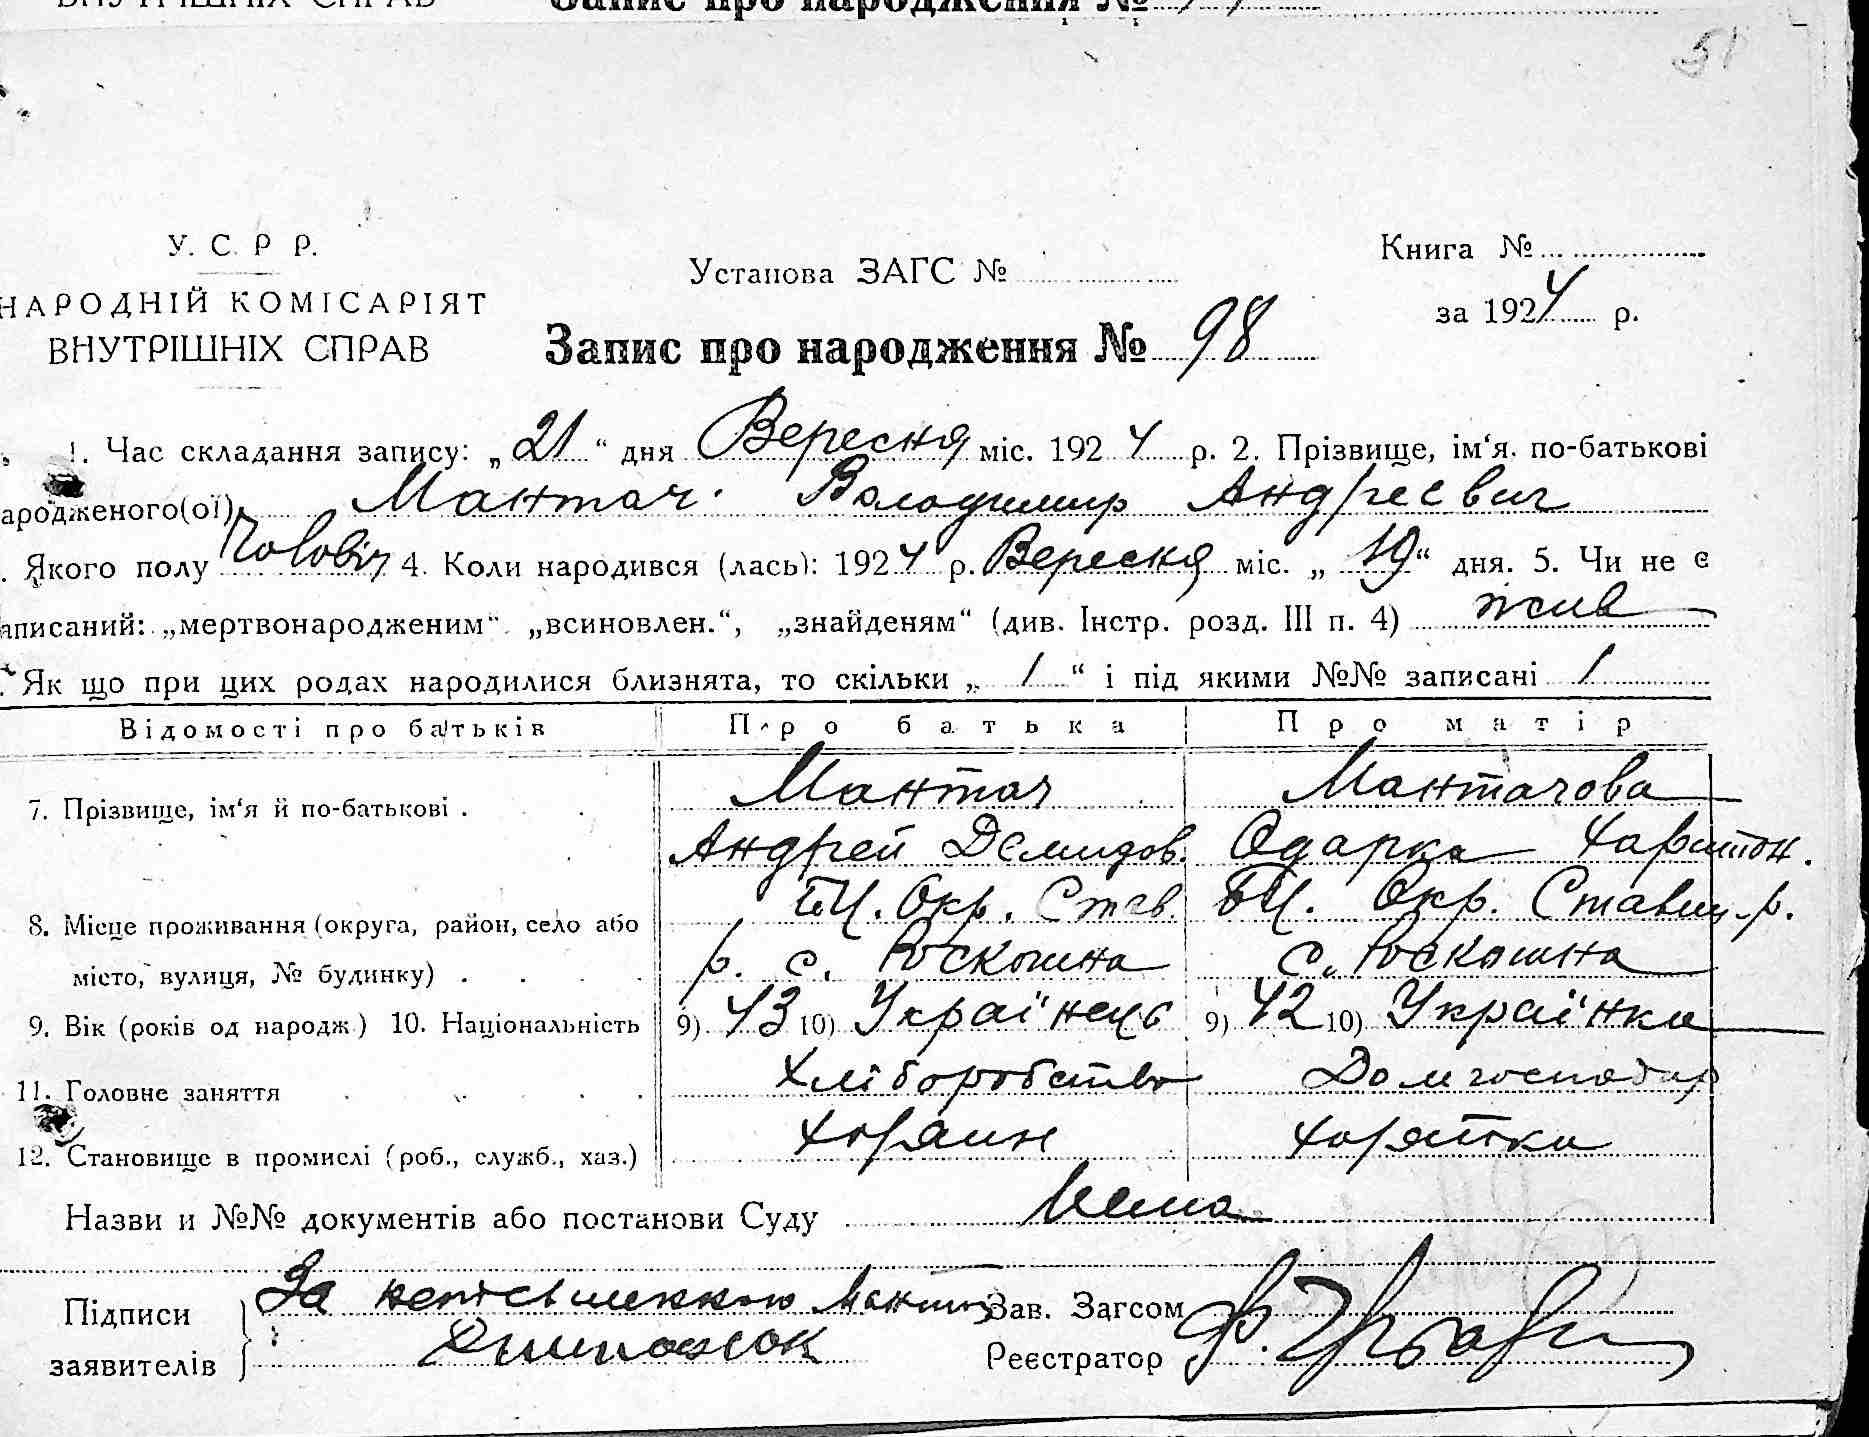 ВНУТРІШНІХ СПРАВ Запис про народження №
51
У. С. Р Р.
НАРОДНІЙ КОМІСАРІЯТ
ВНУТРІШНІХ СПРАВ
Установа ЗАГС №
Книга №
за 1924 р.
Запис про народження № 98
1. Час складання запису: „21“ дня Вересня міс. 1924 р. 2. Прізвище, ім‘я. по-батькові
ародженого(ої) Мантач Володимир Андреєвич
. Якого полу Чоловіч 4. Коли народився (лась): 1924 р. Вересня міс. „19“ дня. 5. Чи не є
аписаний: „мертвонародженим“ „всиновлен.“, „знайденям“ (див. Інстр. розд. III п. 4) жив
. Як що при цих родах народилися близнята, то скільки „ / “ і під якими №№ записані /
Відомості про батьків Про батька Про матір
7. Прізвище, ім‘я й по-батькові . Мантач Мантачова
Андрей Демидов. Одарка Харитон.
8. Місце проживання (округа, район, село або БЦ. Окр. Став. БЦ. Окр. Ставищ. р.
місто, вулиця, № будинку) . р. с. Роскошна с. Роскошна
9. Вік (років од народж.) 10. Національність 9) 43 10) Українець 9) 42 10) Українка
11. Головне заняття Хліборобство Домгосподар
12. Становище в промислі (роб., служб., хаз.) Хазяин Хазяйка
Назви и №№ документів або постанови Суду Нема
Підписи За неписьменною Мантач Зав. Загсом
заявителів Реєстратор